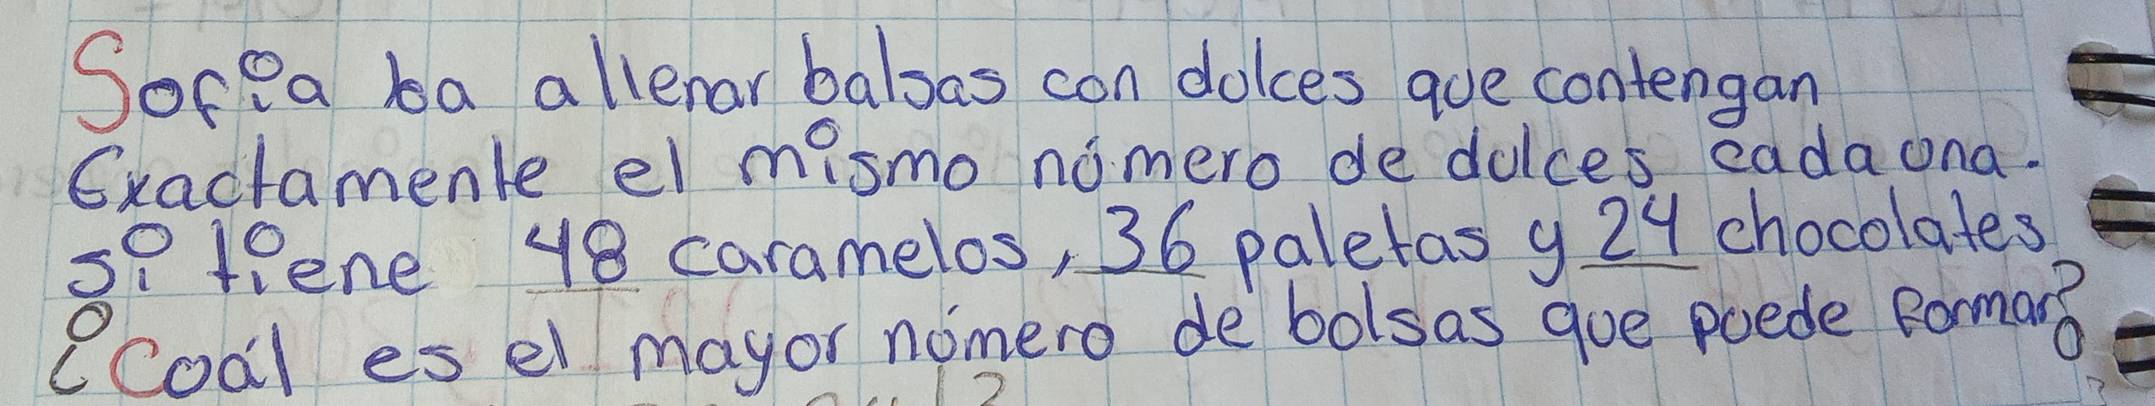 Sofia ba allenar balsas con dulces que contengan
Exactamente el mismo número de dulces cada una.
si tiene 48 caramelos, 36 paletas y 24 chocolates
¿Cuál es el mayor número de bolsas que puede formar?